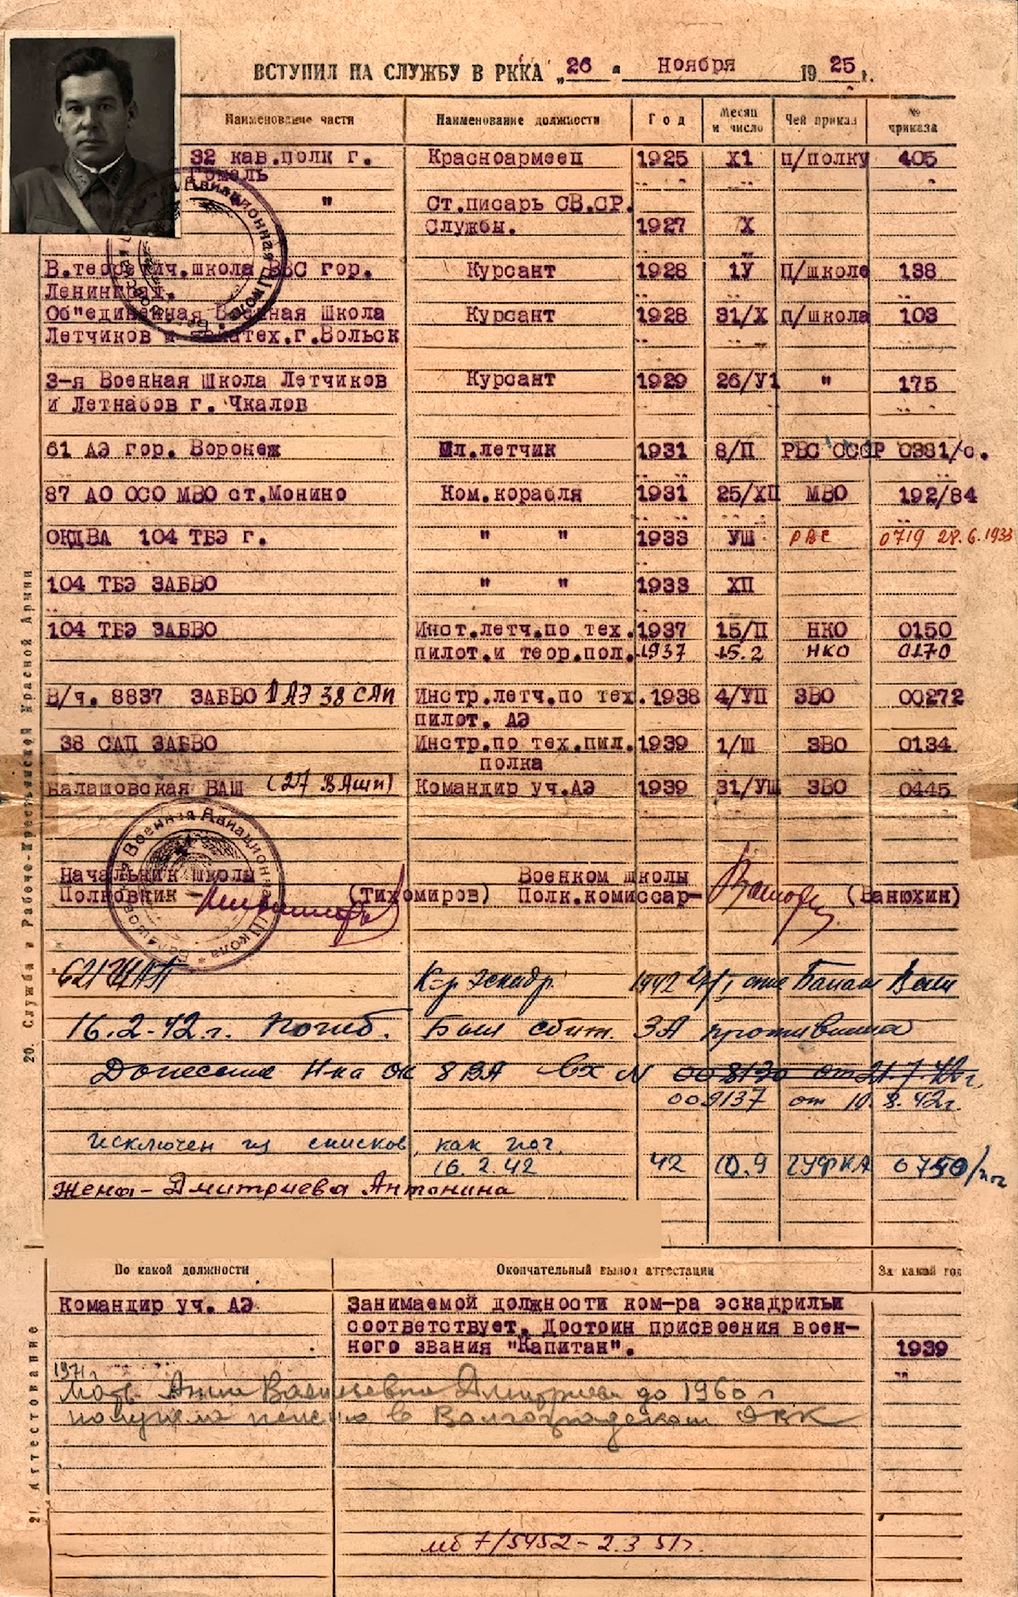 ВСТУПИЛ НА СЛУЖБУ В РККА „26" Ноября 1925 г.
Наименование части Наименование должности Год Месяц и число Чей приказ № приказа
32 кав.полк г. Красноармеец 1925 Х1 п/полку 405
Гомель
" Ст.писарь СВ.СР.
Службы. 1927 Х
В.теоретич.школа ВВС гор. Курсант 1928 1У П/школе 138
Ленинград.
Об"единенная Военная Школа Курсант 1928 31/Х п/школа 103
Летчиков и Авиатех.г.Вольск
3-я Военная Школа Летчиков Курсант 1929 26/У1 " 175
и Летнабов г. Чкалов
61 АЭ гор. Воронеж Мл.летчик 1931 8/П РВС СССР 0381/с.
87 АО ОСО МВО ст.Монино Ком.корабля 1931 25/ХП МВО 192/84
ОКДВА 104 ТБЭ г. " " 1933 УШ РВС 0719 28.6.1933
104 ТБЭ ЗАБВО " " 1933 ХП
104 ТБЭ ЗАБВО Инст.летч.по тех. 1937 15/П НКО 0150
пилот.и теор.пол. 1937 15.2 НКО 0170
В/ч. 8837 ЗАБВО 1 АЭ 38 САП Инстр.летч.по тех. 1938 4/УП ЗВО 00272
пилот. АЭ
38 САП ЗАБВО Инстр.по тех.пил. 1939 1/Ш ЗВО 0134
полка
Балашовская ВАШ (27 ВАШП) Командир уч.АЭ 1939 31/УШ ЗВО 0445
Начальник школы Военком школы
Полковник – (Тихомиров) Полк.комиссар– (Ванюхин)
621 ШАП К-р эскадр. 1942
16.2.42 г. Погиб. Был сбит ЗА противника
Донесение Н-ка ОК 8 ВА вх N 008130 от 21.7.42г.
009137 от 10.8.42г.
Исключен из списков, как пог.
16.2.42 42 10.9 ГУФКА 0740/пог
Жена – Дмитриева Антонина
По какой должности Окончательный вывод аттестации За какой год
Командир уч. АЭ Занимаемой должности ком-ра эскадрильи
соответствует. Достоин присвоения воен-
ного звания "Капитан". 1939
1971 г
Мать Анна Васильевна Дмитриева до 1960 г
получала пенсию в Волгоградском ОВК
мб 7/5452 – 2.3 51г.
20. Служба в Рабоче-Крестьянской Красной Армии
21. Аттестование